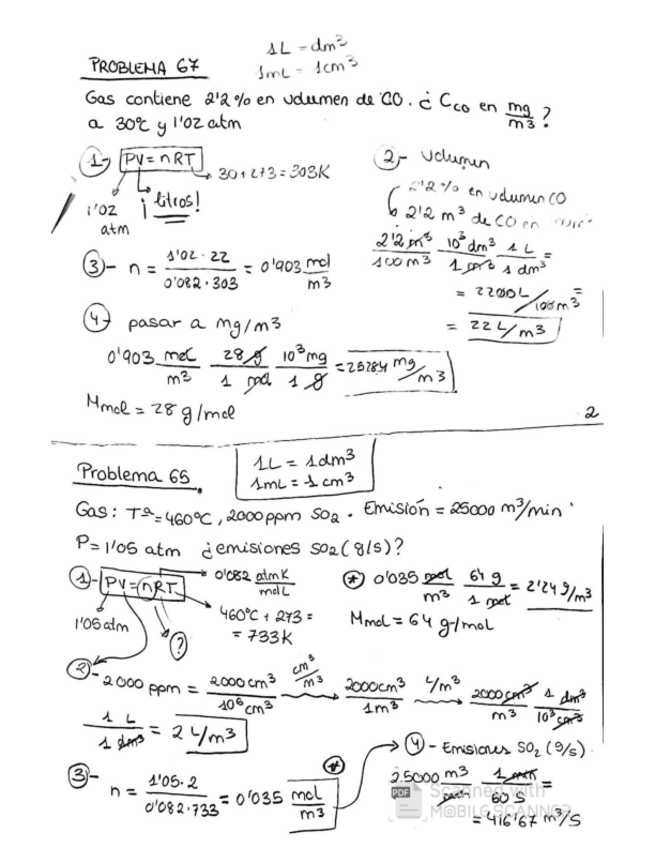 1L = dm³
1mL = 1cm³
PROBLEMA 67
Gas contiene 2'2% en volumen de CO. ¿ C_CO en mg/m3?
a 30ºC y 1'02 atm
1- PV = nRT
30+273 = 303K
1'02 atm
¡ litros!
2- Volumen
2'2% en volumen CO
2'2 m³ de CO en
2'2 m³/100 m³ 10³ dm³/1 m³ 1 L/1 dm³ =
= 2200L/100m³ =
= 22 L/m³
3- n = 1'02 · 22/0'082 · 303 = 0'903 mol/m3
4- pasar a mg/m3
0'903 mol/m³ 28 g/1 mol 10³ mg/1 g = 25284 mg/m3
Mmol = 28 g/mol
2
Problema 65.
1L = 1dm³
1mL = 1 cm³
Gas: Tª = 460ºC, 2000 ppm SO₂. Emisión = 25000 m³/min
P = 1'05 atm ¿emisiones SO₂ (g/s)?
1- PV = nRT
0'082 atm K/mol L
460ºC + 273 =
= 733K
1'05 atm
?
* 0'035 mol/m³ 64 g/1 mol = 2'24 g/m³
Mmol = 64 g/mol
2- 2000 ppm = 2000 cm³/10⁶ cm³ cm³/m³ 2000cm³/1m³ L/m³ 2000 cm³/m³ 1 dm³/10³ cm³
1 L/1 dm³ = 2 L/m³
3- n = 1'05 · 2/0'082 · 733 = 0'035 mol/m³ *
4 - Emisiones SO₂ (g/s)
25000 m3/min 1 min/60 s =
= 416'67 m³/s
PDF Scanned with
MOBILE SCANNER